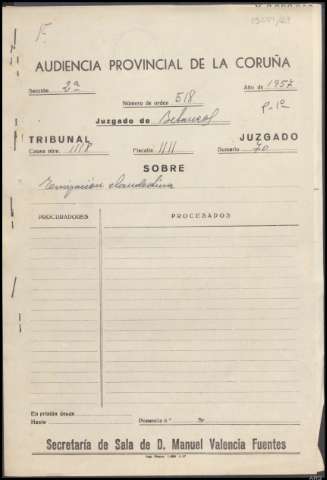 AUDIENCIA PROVINCIAL DE LA CORUÑA
Sección 2ª Año de 1957
Número de orden 518 P-1º
Juzgado de Betanzos
TRIBUNAL JUZGADO
Causa núm. 1118 Fiscalía 1111 Sumario 70
SOBRE
clandestina
PROCURADORES PROCESADOS
En prisión desde
Hasta Ponencia nº Sr.
Secretaría de Sala de D. Manuel Valencia Fuentes